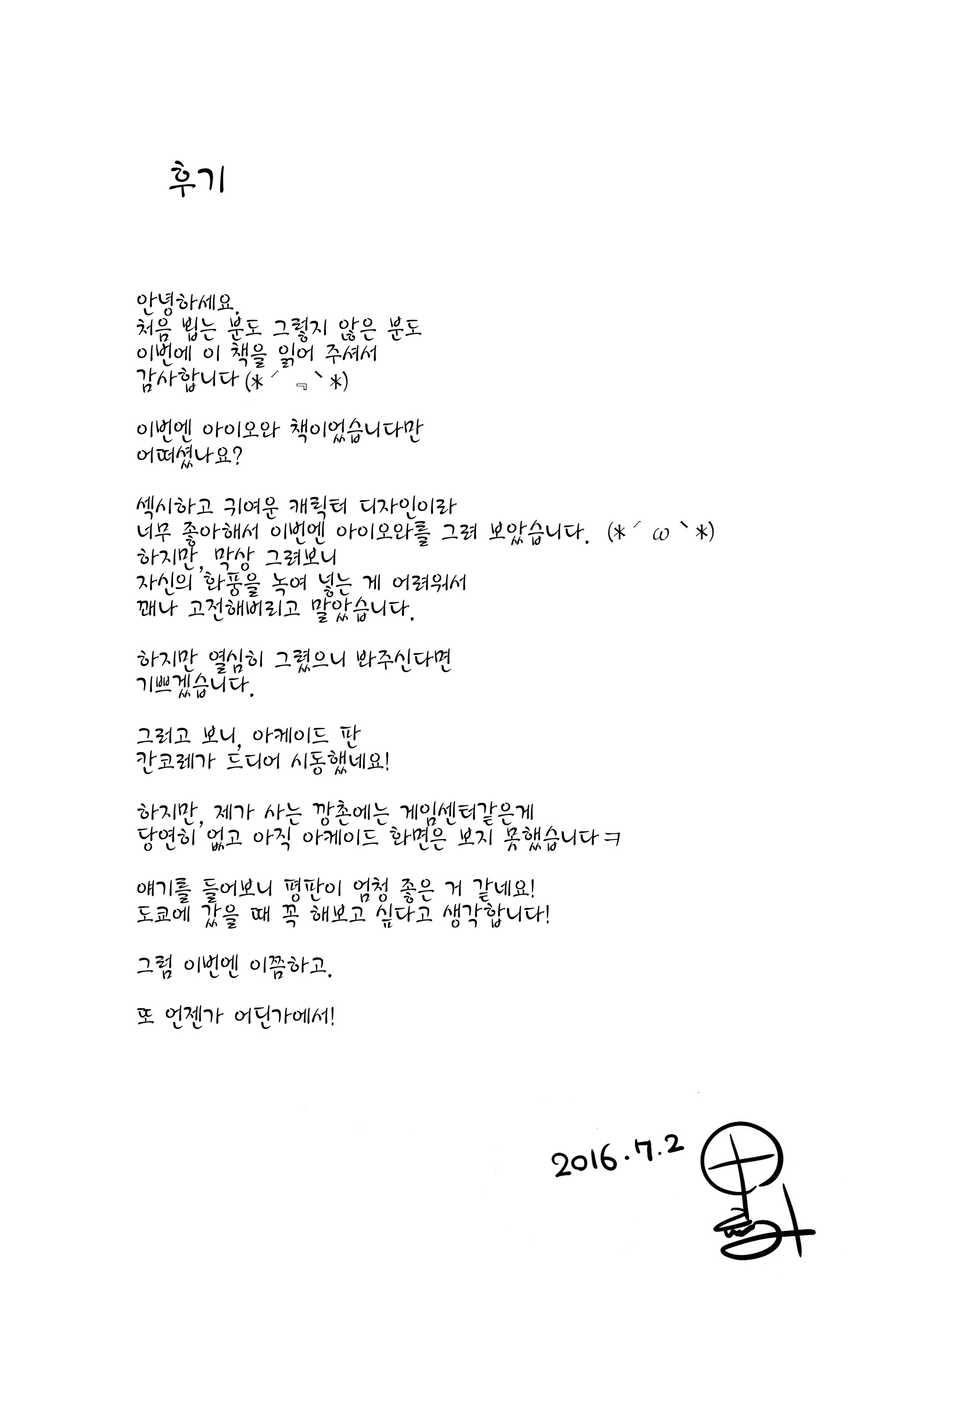 후기
안녕하세요.
처음 뵙는 분도 그렇지 않은 분도
이번에 이 책을 읽어 주셔서
감사합니다(*´﹃`*)
이번엔 아이오와 책이었습니다만
어떠셨나요?
섹시하고 귀여운 캐릭터 디자인이라
너무 좋아해서 이번엔 아이오와를 그려 보았습니다. (*´ω`*)
하지만, 막상 그려보니
자신의 화풍을 녹여 넣는 게 어려워서
꽤나 고전해버리고 말았습니다.
하지만 열심히 그렸으니 봐주신다면
기쁘겠습니다.
그러고 보니, 아케이드 판
칸코레가 드디어 시동했네요!
하지만, 제가 사는 깡촌에는 게임센터같은게
당연히 없고 아직 아케이드 화면은 보지 못했습니다ㅋ
얘기를 들어보니 평판이 엄청 좋은 거 같네요!
도쿄에 갔을 때 꼭 해보고 싶다고 생각합니다!
그럼 이번엔 이쯤하고.
또 언젠가 어딘가에서!
2016.7.2